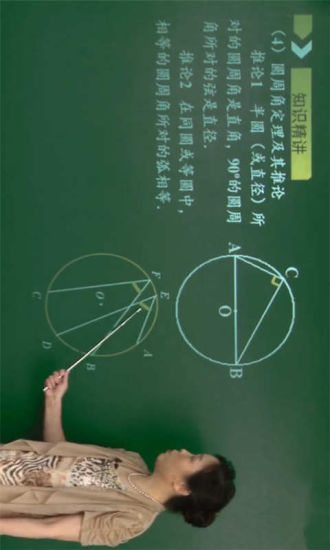 知识精讲
(4) 圆周角定理及其推论
推论1 半圆（或直径）所
对的圆周角是直角，90°的圆周
角所对的弦是直径.
推论2 在同圆或等圆中，
相等的圆周角所对的弧相等.
C
A
O
B
F
E
C
O
A
D
B